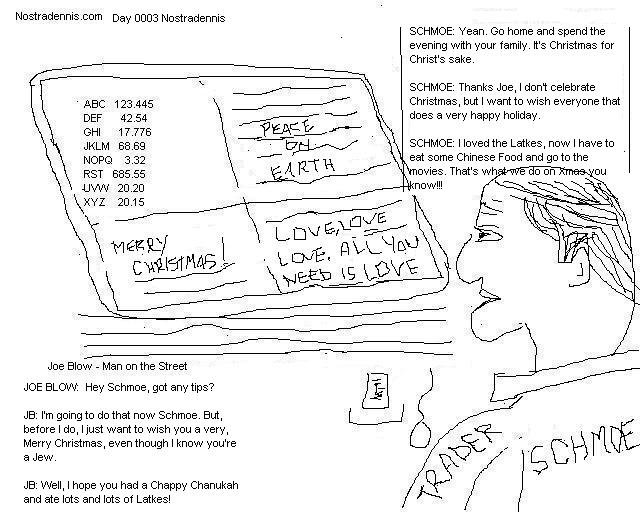 Nostradennis.com Day 0003 Nostradennis
SCHMOE: Yean. Go home and spend the
evening with your family. It's Christmas for
Christ's sake.
SCHMOE: Thanks Joe, I don't celebrate
Christmas, but I want to wish everyone that
does a very happy holiday.
SCHMOE: I loved the Latkes, now I have to
eat some Chinese Food and go to the
movies. That's what we do on Xmas you
know!!!
ABC 123.445
DEF 42.54
GHI 17.776
JKLM 68.69
NOPQ 3.32
RST 685.55
UVW 20.20
XYZ 20.15
PEACE
ON
EARTH
MERRY
CHRISTMAS!
LOVE, LOVE
LOVE. ALL YOU
NEED IS LOVE
Joe Blow - Man on the Street
JOE BLOW: Hey Schmoe, got any tips?
JB: I'm going to do that now Schmoe. But,
before I do, I just want to wish you a very,
Merry Christmas, even though I know you're
a Jew.
JB: Well, I hope you had a Chappy Chanukah
and ate lots and lots of Latkes!
TRADER SCHMOE